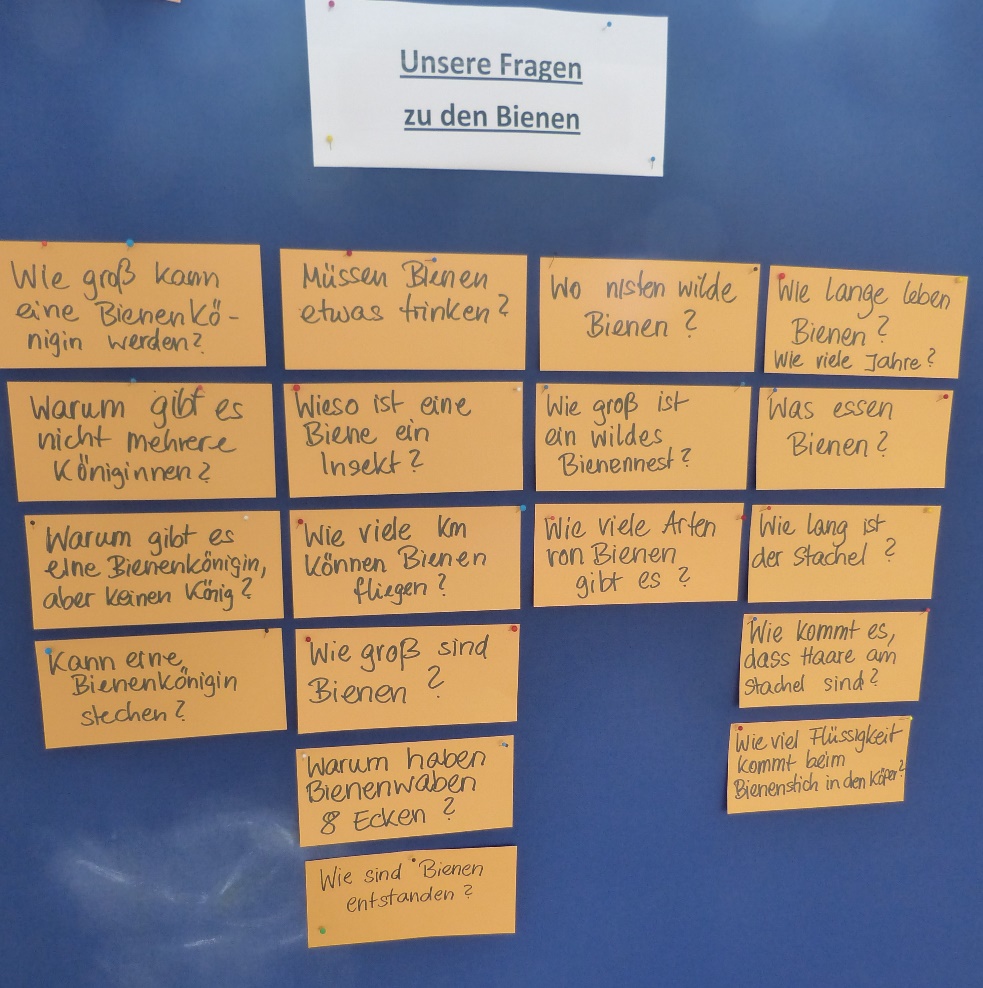 Unsere Fragen
zu den Bienen
Wie groß kann
eine Bienenkö-
nigin werden?
Warum gibt es
nicht mehrere
Königinnen?
Warum gibt es
eine Bienenkönigin,
aber keinen König?
Kann eine
Bienenkönigin
stechen?
Müssen Bienen
etwas trinken?
Wieso ist eine
Biene ein
Insekt?
Wie viele km
können Bienen
fliegen?
Wie groß sind
Bienen?
Warum haben
Bienenwaben
8 Ecken?
Wie sind Bienen
entstanden?
Wo nisten wilde
Bienen?
Wie groß ist
ein wildes
Bienennest?
Wie viele Arten
von Bienen
gibt es?
Wie lange leben
Bienen?
Wie viele Jahre?
Was essen
Bienen?
Wie lang ist
der Stachel?
Wie kommt es,
dass Haare am
Stachel sind?
Wie viel Flüssigkeit
kommt beim
Bienenstich in den Köper?